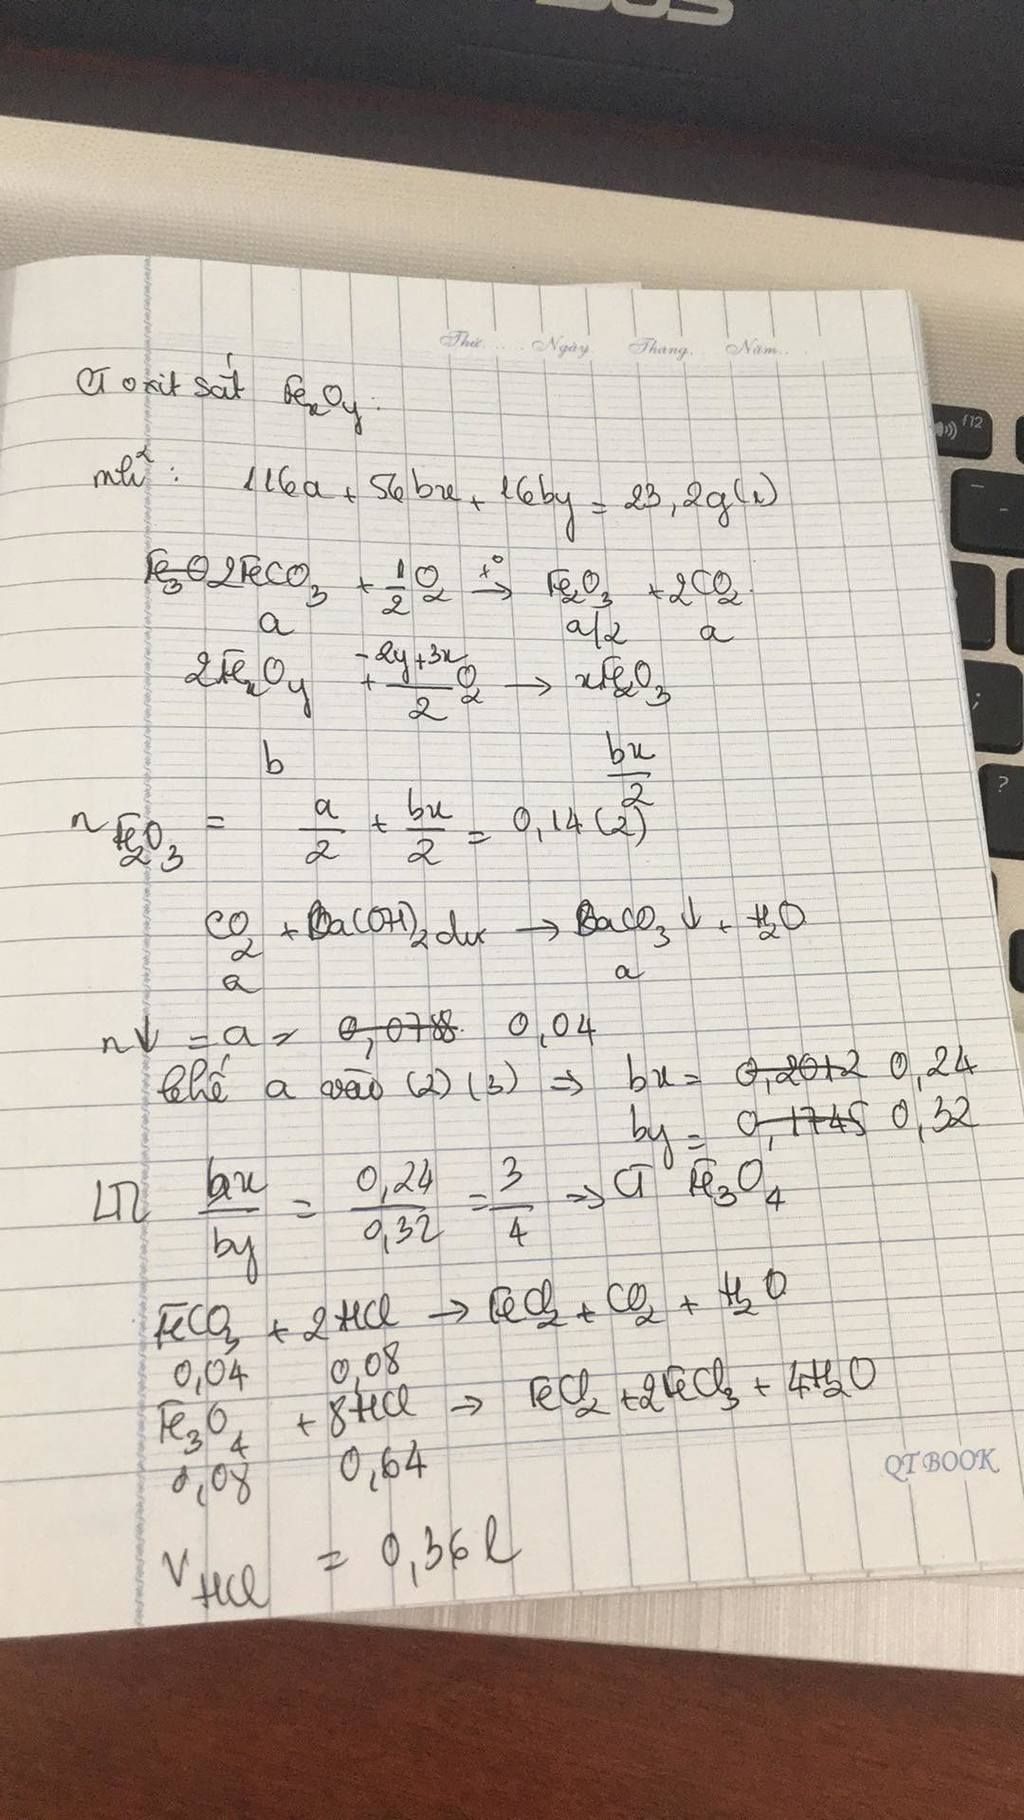 Thứ.... Ngày Tháng. Năm...
CT oxit sắt FexOy.
mhh: 116a + 56bx + 16by = 23,2g (1)
Fe3O 2FeCO3 + 1/2 O2 t° → Fe2O3 + 2CO2
a a/2 a
2FexOy + (-2y+3x)/2 O2 → xFe2O3
b bx/2
nFe2O3 = a/2 + bx/2 = 0,14 (2)
CO2 + Ba(OH)2 dư → BaCO3 ↓ + H2O
a a
n↓ = a = 0,0788 0,04
thế a vào (2) (3) ⇒ bx = 0,2012 0,24
by = 0,1745 0,32
LTL bx/by = 0,24/0,32 = 3/4 ⇒ CT Fe3O4
FeCO3 + 2HCl → FeCl2 + CO2 + H2O
0,04 0,08
Fe3O4 + 8HCl → FeCl2 + 2FeCl3 + 4H2O
0,08 0,64
QT BOOK
VHCl = 0,36 l
F12
?